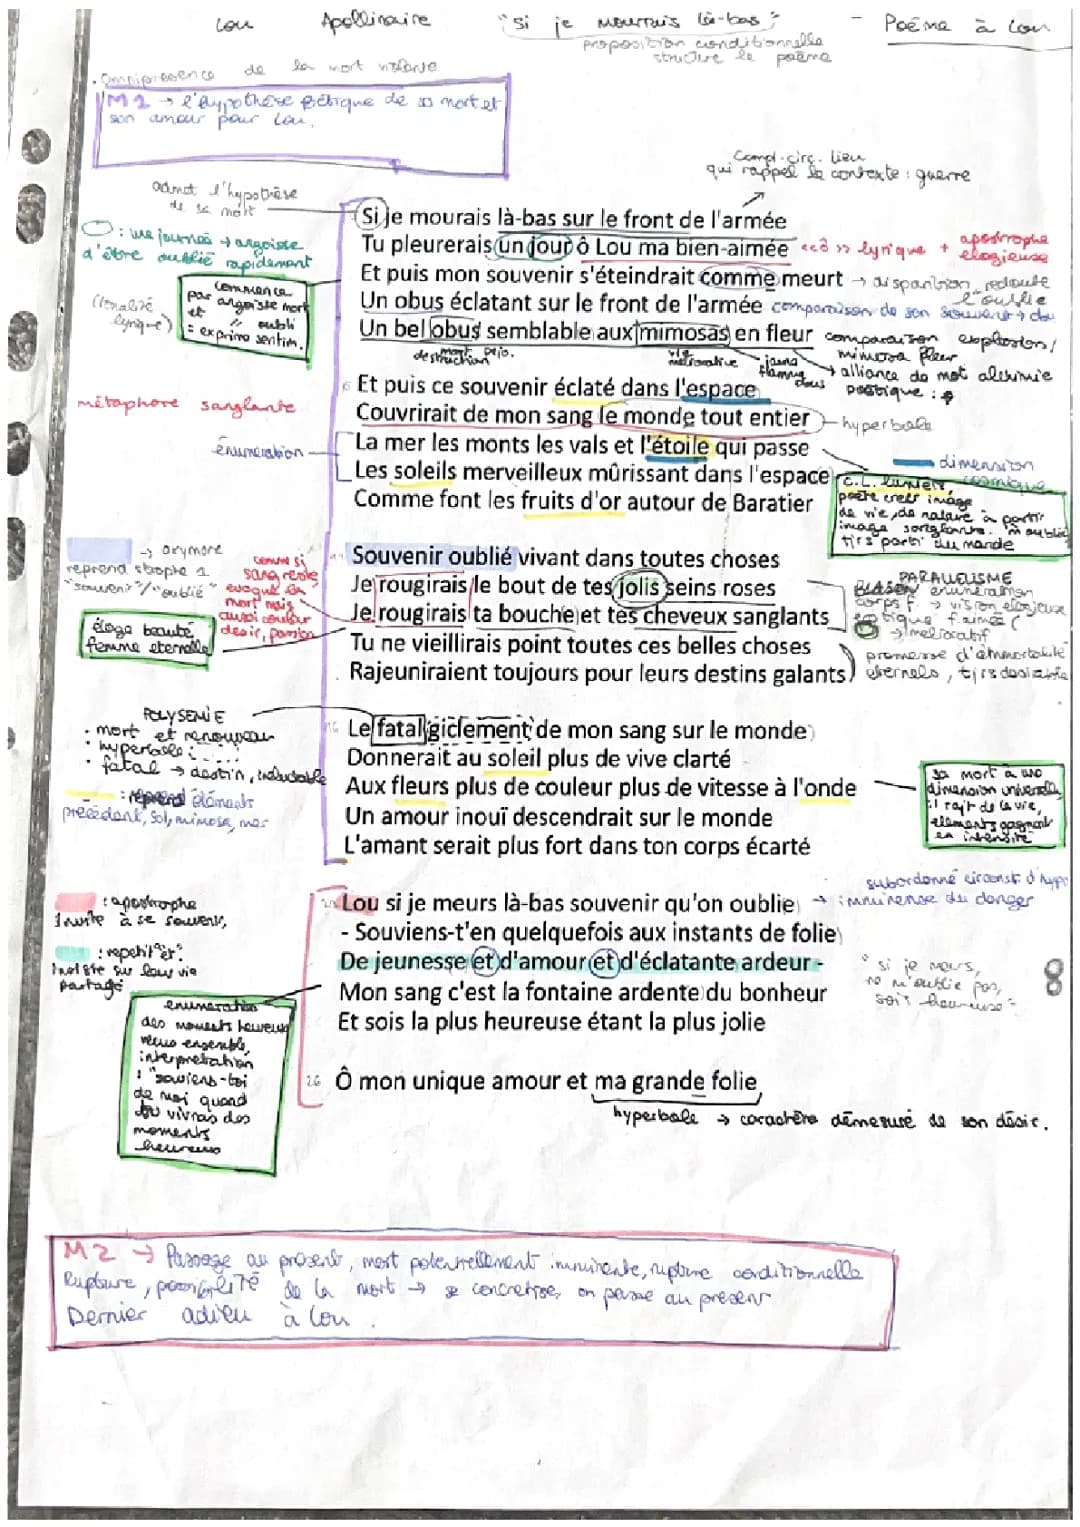 Lou Apollinaire "Si je mourrais là-bas" - Poème à Lou
proposition conditionnelle
structure le poème
. Omniprésence de la mort violente
M1 → l'hypothèse poétique de sa mort et
son amour pour Lou.
Compl. circ. lieu
qui rappel le contexte : guerre
admet l'hypothèse
de sa mort
Si je mourais là-bas sur le front de l'armée
: une journée → angoisse
d'être oublié rapidement
Tu pleurerais un jour ô Lou ma bien-aimée
<<ô>> lyrique + apostrophe
élogieuse
Et puis mon souvenir s'éteindrait comme meurt
→ disparition, redoute
l'oublie
commence
par angoisse mort
et // oubli
= exprime sentim.
(tonalité
lyrique)
Un obus éclatant sur le front de l'armée
comparaison de son souvenir +
Un bel obus semblable aux mimosas en fleur
comparaison explosion/
mimosa fleur
mort péjo.
destruction
vie
méliorative
jaune
→ alliance de mot alchimie
poétique :
6 Et puis ce souvenir éclaté dans l'espace
métaphore sanglante
Couvrirait de mon sang le monde tout entier
hyperbole
énumération
La mer les monts les vals et l'étoile qui passe
dimension
cosmique
Les soleils merveilleux mûrissant dans l'espace
Comme font les fruits d'or autour de Baratier
C.L. lumière,
poète créer image
de vie, de nature à partir
image sanglante.
tjrs parti du monde
→ oxymore
reprend strophe 1
"souvenir"/"oublié"
11 Souvenir oublié vivant dans toutes choses
comme si
sang reste
évoque la
mort mais
aussi couleur
désir, passion
Je rougirais le bout de tes jolis seins roses
PARALLELISME
BLASON énumération
corps f. → vision élogieuse
Je rougirais ta bouche et tes cheveux sanglants
érotique f. aimée
→ mélioratif
éloge beauté
femme eternelle
Tu ne vieillirais point toutes ces belles choses
promesse d'immortalité
Rajeuniraient toujours pour leurs destins galants
éternels, tjrs désirable
POLYSEMIE
. mort et renouveau
. hyperbole :
. fatal → destin, inéluctable
: reprend éléments
précédent, sol, mimosa, mer
16 Le fatal giclement de mon sang sur le monde
Donnerait au soleil plus de vive clarté
Aux fleurs plus de couleur plus de vitesse à l'onde
Un amour inouï descendrait sur le monde
L'amant serait plus fort dans ton corps écarté
sa mort a une
dimension universelle,
il rajt de la vie,
elements gagnent
en intensité
subordonné circonst. d'hypo
→ imminence du danger
: apostrophe
Invite à se souvenir,
21 Lou si je meurs là-bas souvenir qu'on oublie
- Souviens-t'en quelquefois aux instants de folie
: repetition "et".
Insiste sur leur vie
partagé
De jeunesse et d'amour et d'éclatante ardeur -
"si je meurs,
ne m'oublie pas,
sois heureuse"
8
Mon sang c'est la fontaine ardente du bonheur
Et sois la plus heureuse étant la plus jolie
enumeration
des moments heureux
vécus ensemble,
interprétation
: "souviens-toi
de moi quand
tu vivras des
moments
heureux
26 Ô mon unique amour et ma grande folie
hyperbole → caractère démesuré de son désir.
M2 → Passage au présent, mort potentiellement imminente, rupture conditionnelle
Rupture, possibilité de la mort → se concretise, on passe au présent
Dernier adieu à Lou.